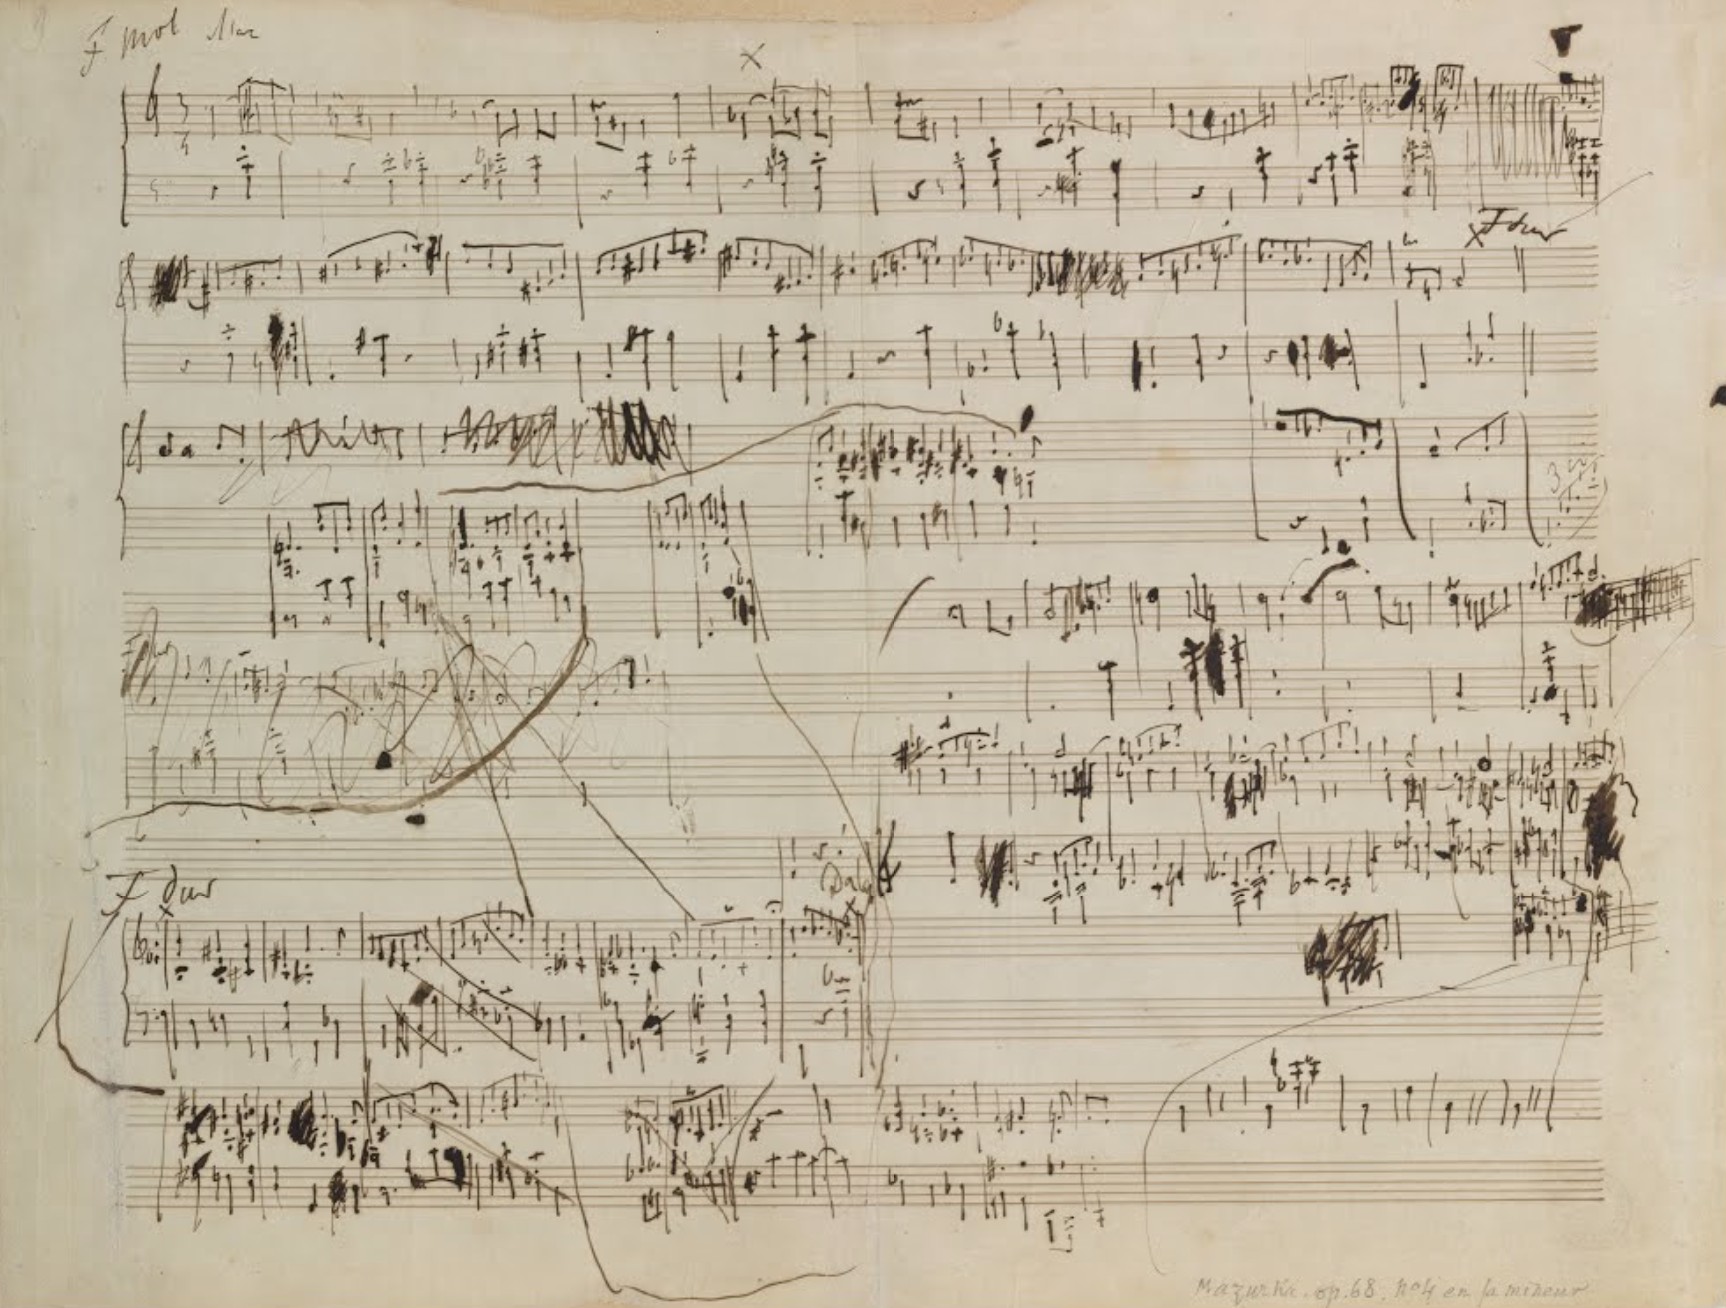 F mol Maz
F dur
F dur
Dalej
Mazurka. op. 68. no 4 en fa mineur